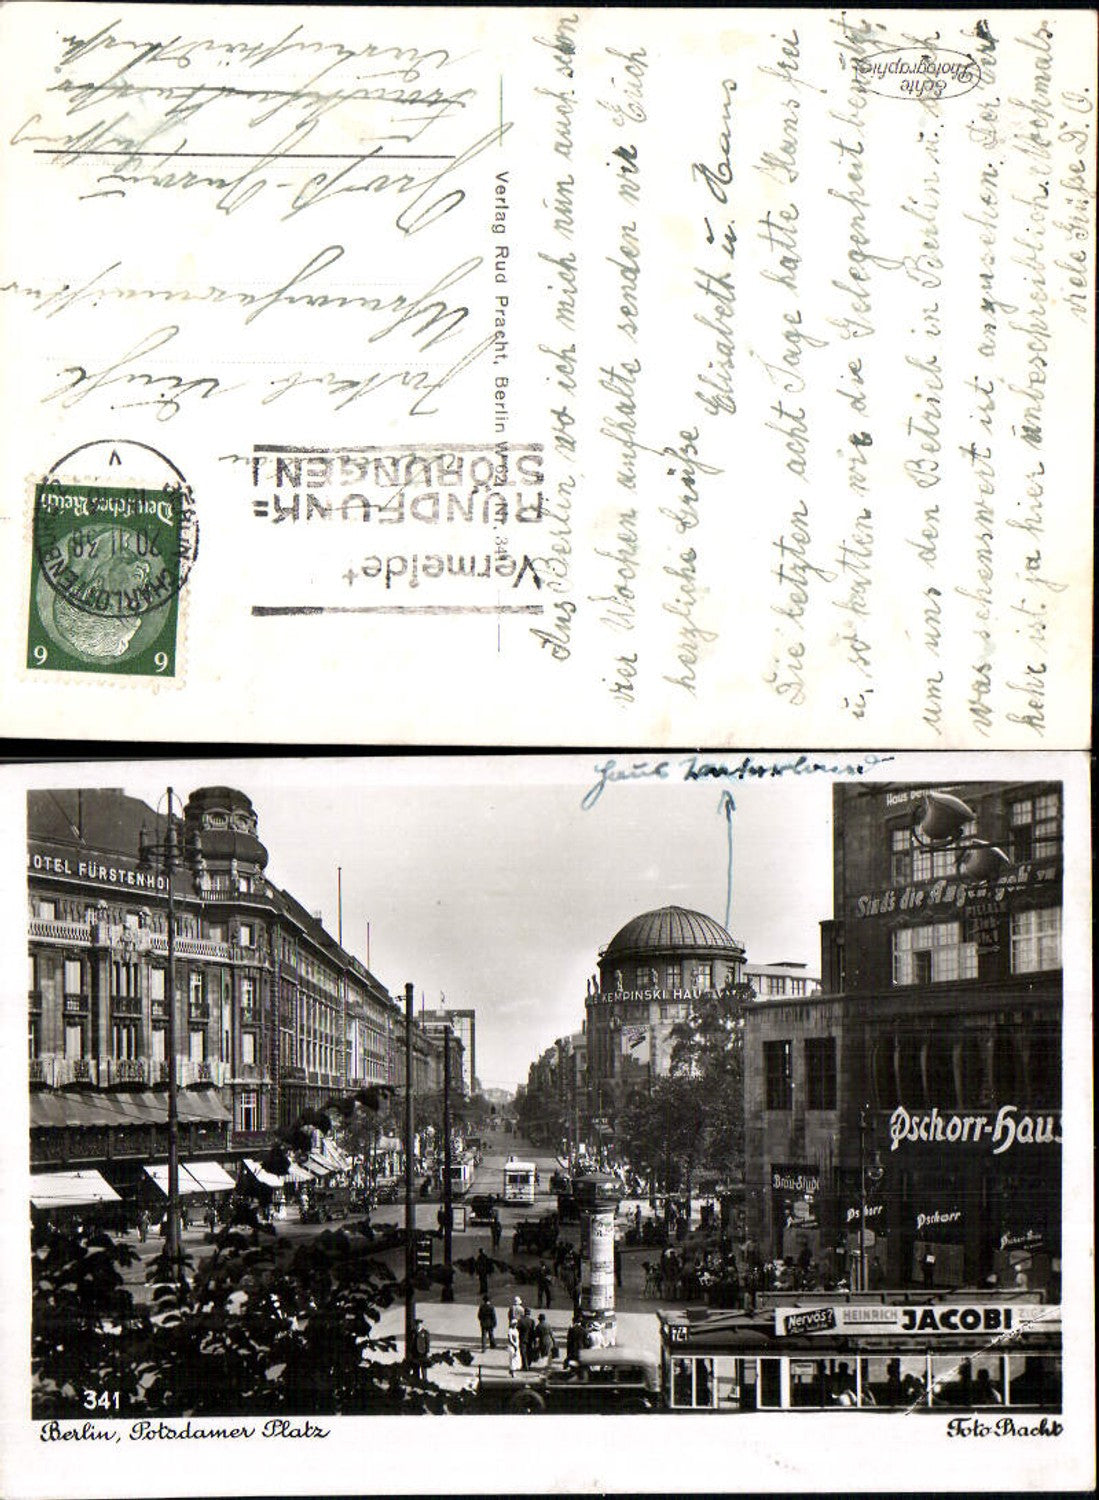 Echte
Photographie
Aus Berlin, wo ich mich nun auch schon
vier Wochen aufhalte senden wir Euch
herzliche Grüße
Elisabeth u. Hans
Die letzten acht Tage hatte Hans frei
u. so hatten wir die Gelegenheit benützt,
um uns den Betrieb in Berlin u.
was sehenswert ist anzusehen. Der Ver-
kehr ist ja hier unbeschreiblich. Nochmals
viele Grüße D. O.
Verlag Rud Pracht, Berlin W 62, Nr. 341
Vermeide
RUNDFUNK=
STÖRUNGEN!
BERLIN-CHARLOTTENBURG
20.11.38
V
Deutsches Reich
6 6
Jakob
Uhrmachermeister
Groß-Gerau
Haus Vaterland
HOTEL FÜRSTENHOF
KEMPINSKI HAUS
Sind's die Augen, geh' zu
Pschorr-Haus
Bräu-Stübl
Pschorr
Pschorr
74
Nervös?
HEINRICH JACOBI
341
Berlin, Potsdamer Platz
Foto-Pracht